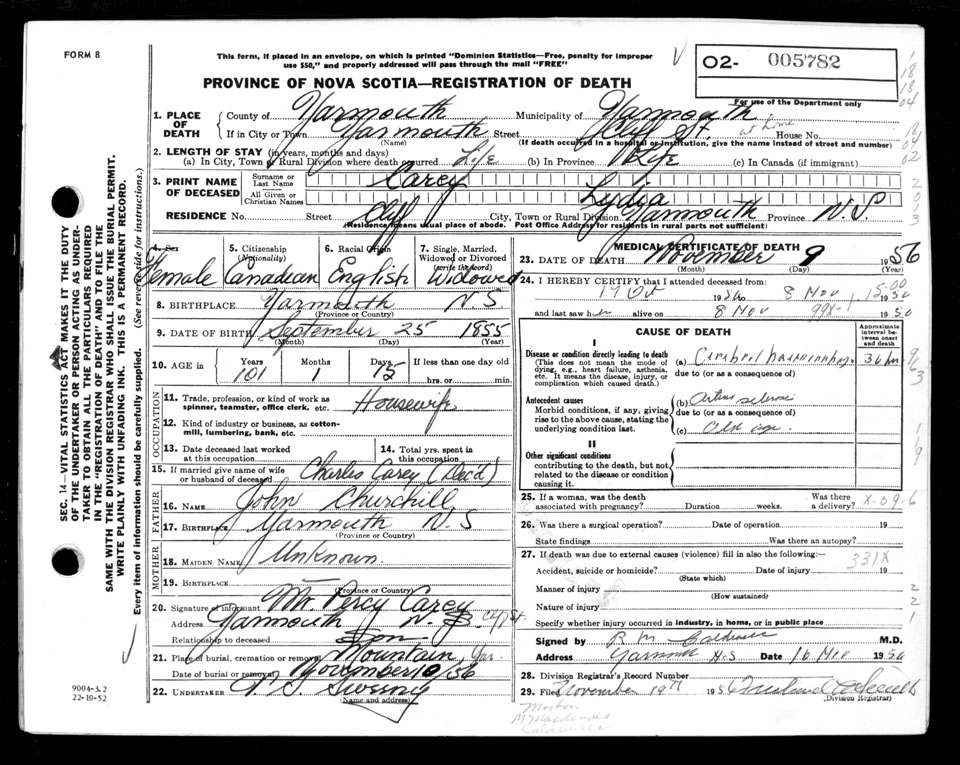 FORM 8
This form, if placed in an envelope, on which is printed "Dominion Statistics—Free, penalty for improper
use $50," and properly addressed will pass through the mail "FREE"
PROVINCE OF NOVA SCOTIA—REGISTRATION OF DEATH
O2- 005782
For use of the Department only
1. PLACE OF DEATH
County of Yarmouth Municipality of Yarmouth
If in City or Town Yarmouth Street Cliff St. at home House No.
(Name) (If death occurred in a hospital or institution, give the name instead of street and number)
2. LENGTH OF STAY (in years, months and days)
(a) In City, Town or Rural Division where death occurred Life (b) In Province Life (c) In Canada (if immigrant)
3. PRINT NAME OF DECEASED
Surname or Last Name Carey
All Given or Christian Names Lydia
RESIDENCE No. Street Cliff City, Town or Rural Division Yarmouth Province N.S.
(Residence means usual place of abode. Post Office Address for residents in rural parts not sufficient)
4. Sex Female
5. Citizenship (Nationality) Canadian
6. Racial Origin English
7. Single, Married, Widowed or Divorced (write the word) Widowed
8. BIRTHPLACE Yarmouth N S
(Province or Country)
9. DATE OF BIRTH September 25 1855
(Month) (Day) (Year)
10. AGE in Years 101 Months 1 Days 15 If less than one day old
hrs. or min.
OCCUPATION
11. Trade, profession, or kind of work as spinner, teamster, office clerk, etc. Housewife
12. Kind of industry or business, as cotton-mill, lumbering, bank, etc.
13. Date deceased last worked at this occupation
14. Total yrs. spent in this occupation
15. If married give name of wife or husband of deceased Charles Carey (Dec'd)
FATHER
16. NAME John Churchill
17. BIRTHPLACE Yarmouth N S
(Province or Country)
MOTHER
18. MAIDEN NAME Unknown
19. BIRTHPLACE —
(Province or Country)
20. Signature of informant Mr. Percy Carey
Address Yarmouth N.S. Cliff St.
Relationship to deceased Son
21. Place of burial, cremation or removal Mountain, Yar.
Date of burial or removal November 10/56
22. UNDERTAKER V. S. Sweeny
(Name and address)
MEDICAL CERTIFICATE OF DEATH
23. DATE OF DEATH November 9 1956
(Month) (Day) (Year)
24. I HEREBY CERTIFY that I attended deceased from:
8 Nov 1956
and last saw her 8 Nov 1956
CAUSE OF DEATH
Approximate interval between onset and death
I
Disease or condition directly leading to death
(This does not mean the mode of dying, e.g., heart failure, asthenia, etc. It means the disease, injury, or complication which caused death.)
(a) Cerebral haemorrhage 36 hrs
due to (or as a consequence of)
Antecedent causes
Morbid conditions, if any, giving rise to the above cause, stating the underlying condition last.
(b) Arterio sclerosis
due to (or as a consequence of)
(c) Old age.
II
Other significant conditions
contributing to the death, but not related to the disease or condition causing it.
25. If a woman, was the death associated with pregnancy? Duration weeks. Was there a delivery? X-09-6
26. Was there a surgical operation? Date of operation 19
State findings Was there an autopsy?
27. If death was due to external causes (violence) fill in also the following:—
331X
Accident, suicide or homicide? Date of injury 19
(State which)
Manner of injury
(How sustained)
Nature of injury
Specify whether injury occurred in industry, in home, or in public place
Signed by R M Caldwell M.D.
Address Yarmouth N.S Date 16 Nov 1956
28. Division Registrar's Record Number
29. Filed November 19th 1956
(Division Registrar)
Morton
McMacdonald
Caldwell
SEC. 14—VITAL STATISTICS ACT MAKES IT THE DUTY
OF THE UNDERTAKER OR PERSON ACTING AS UNDER-
TAKER TO OBTAIN ALL THE PARTICULARS REQUIRED
IN THE "REGISTRATION OF DEATH" AND TO FILE THE
SAME WITH THE DIVISION REGISTRAR WHO SHALL ISSUE THE BURIAL PERMIT.
WRITE PLAINLY WITH UNFADING INK. THIS IS A PERMANENT RECORD.
Every item of information should be carefully supplied. (See reverse side for instructions.)
9004-3.2
22-10-52